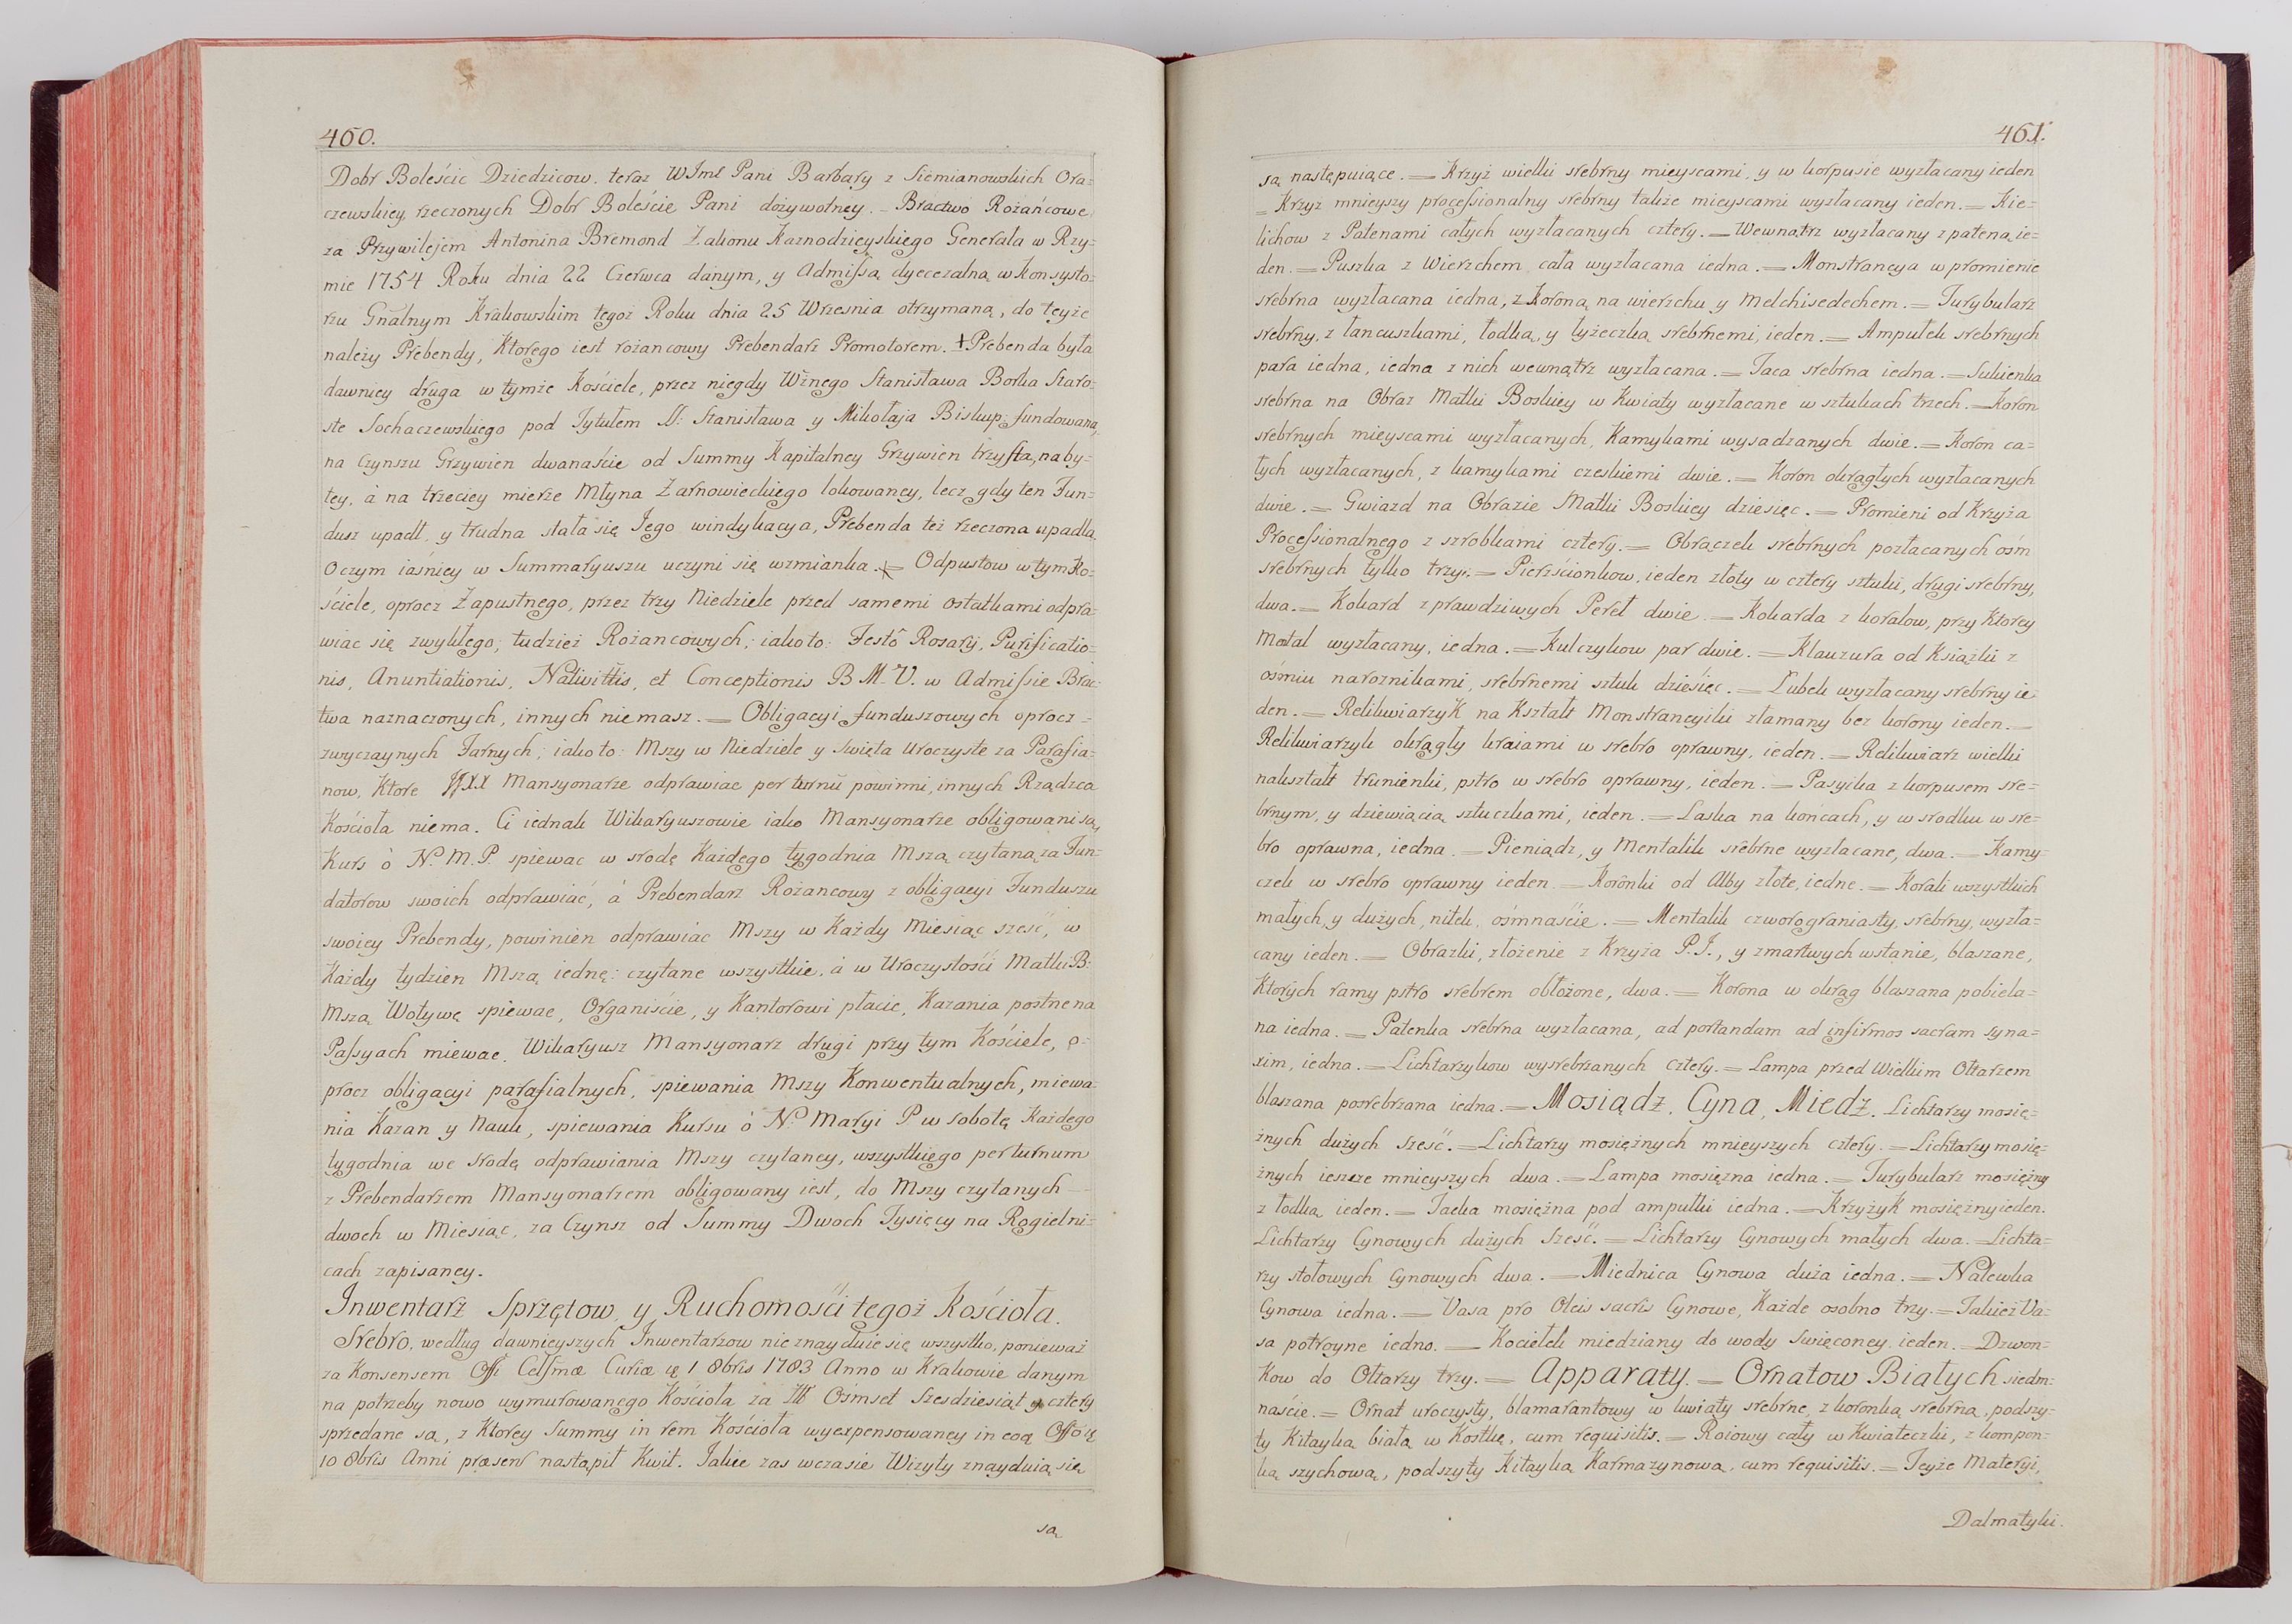 460.
Dobr Boleścic Dziedzicow. teraz WJmć Pani Barbary z Siemianowskich Ora=
czewskiey, rzeczonych Dobr Boleście Pani dożywotney. – Bractwo Rożańcowe
za Przywilejem Antonina Bremond Zakonu Kaznodzieyskiego Generała w Rzy=
mie 1754 Roku dnia 22 Czerwca danym, y Admissą dyecezalną w Konsysto=
rzu Gnalnym Krakowskim tegoż Roku dnia 25 Wrzesnia otrzymaną, do teyże
należy Prebendy, Ktorego iest rożancowy Prebendarz Promotorem. + Prebenda była
dawniey druga w tymże Kościele, przez niegdy Wżnego Stanisława Borka Staro=
ste Sochaczewskiego pod Tytułem SS: Stanisława y Mikołaja Biskup: fundowana,
na Czynszu Grzywien dwanaście od Summy Kapitalney Grzywien trzysta, naby=
tey, á na trzeciey mierze Młyna Żarnowieckiego lokowaney, lecz gdy ten Fun=
dusz upadł, y trudna stała się Jego windykacya, Prebenda też rzeczona upadła.
O czym iáśniey w Summaryuszu uczyni się wzmianka. + = Odpustow w tym Ko=
ściele, oprocz Zapustnego, przez trzy Niedziele przed samemi ostatkami odpra=
wiac się zwykłego; tudzież Rożancowych; iako to: Festo Rosarij, Purificatio=
nis, Anuntiationis, Nativittis, et Conceptionis B. M. V. w Admissie Brac=
twa naznaczonych, innych niemasz. = Obligacyi funduszowych oprocz =
zwyczaynych Farnych; iako to: Mszy w Niedziele y Swięta Uroczyste za Parafia=
now, Ktore XX Mansyonarze odprawiac per turnũ powinni, innych Rządzca
Kościoła niema. Ci iednak Wikaryuszowie iako Mansyonarze obligowani są,
Kurs ò N. M. P. spiewac w srodę Każdego tygodnia Mszą czytaną za Fun=
datorow swoich odprawiać, á Prebendarz Rożancowy z obligacyi Funduszu
swoiey Prebendy, powinien odprawiac Mszy w Każdy Miesiąc sześć, w
Każdy tydzien Mszą iednę: czytane wszystkie, á w Uroczystości Matki B:
Mszą Wotywę spiewac, Organiście, y Kantorowi płacic, Kazania postne na
Passyach miewac. Wikaryusz Mansyonarz drugi przy tym Kościele, o=
procz obligacyi parafialnych, spiewania Mszy Konwentualnych, miewa=
nia Kazan y Nauk, spiewania Kursu ò N. Maryi P. w sobotę Każdego
tygodnia we srodę odprawiania Mszy czytaney, wszystkiego per turnum
z Prebendarzem Mansyonarzem obligowany iest, do Mszy czytanych –
dwoch w Miesiąc, za Czynsz od Summy Dwoch Tysięcy na Rogielni=
cach zapisaney.
Inwentarz Sprzętow y Ruchomości tegoż Kościoła.
Srebro, według dawnieyszych Inwentarzow nie znayduie się wszystko, ponieważ
za Konsensem Offi Celsmæ Curiæ 1 8bris 1783 Anno w Krakowie danym
na potrzeby nowo wymurowanego Kościoła za Ośmset Szesdziesiąt y cztery
sprzedane są, z Ktorey Summy in rem Kościoła wyexpensowaney in eoq Offo
10 8bris Anni præsent nastąpił Kwit. Jakie zas wczasie Wizyty znayduią się
są
461.
są następuiące. = Krzyż wielki srebrny mieyscami, y w korpusie wyzłacany ieden
= Krzyż mnieyszy processionalny srebrny także mieyscami wyzłacany ieden. = Kie=
lichow z Patenami całych wyzłacanych cztery. = Wewnątrz wyzłacany z pateną ie=
den. = Puszka z Wierzchem cała wyzłacana iedna. = Monstrancya w promienie
srebrna wyzłacana iedna, z Koroną na wierzchu y Melchisedechem. = Turybularz
srebrny, z łancuszkami, łodką, y łyżeczką srebrnemi, ieden. = Ampułek srebrnych
para iedna, iedna z nich wewnątrz wyzłacana. = Taca srebrna iedna. = Sukienka
srebrna na Obraz Matki Boskiey w Kwiaty wyzłacane w sztukach trzech. = Koron
srebrnych mieyscami wyzłacanych, Kamykami wysadzanych dwie. = Koron ca=
łych wyzłacanych, z kamykami czeskiemi dwie. = Koron okrągłych wyzłacanych
dwie. = Gwiazd na Obrazie Matki Boskiey dziesięc. = Promieni od Krzyża
Processionalnego z szrobkami cztery. = Obrączek srebrnych pozłacanych ośm
srebrnych tylko trzy. = Pierścionkow, ieden złoty w cztery sztuki, drugi srebrny,
dwa. = Kokard z prawdziwych Pereł dwie. = Kokarda z koralow, przy Ktorey
Matal wyzłacany, iedna. = Kulczykow par dwie. = Klauzura od Książki z
ośmiu narożnikami, srebrnemi sztuk dziesięc. = Łubek wyzłacany srebrny ie=
den. = Relikwiarzyk na Kształt Monstrancyiki złamany bez korony ieden. =
Relikwiarzyk okrągły kraiami w srebro oprawny, ieden. = Relikwiarz wielki
nakształt trunienki, pstro w srebro oprawny, ieden. = Pasyika z korpusem sre=
brnym, y dziewiącią sztuczkami, ieden. = Laska na końcach, y w srodku w sre=
bro oprawna, iedna. = Pieniądz, y Mentalik srebrne wyzłacane, dwa. = Kamy=
czek w srebro oprawny ieden. = Koronki od Alby złote, iedne. = Korali wszystkich
małych, y dużych, nitek, ośmnaście. = Mentalik czworograniasty, srebrny, wyzła=
cany ieden. = Obrazki, złożenie z Krzyża P. J., y zmartwychwstanie, blaszane,
Ktorych ramy pstro srebrem obłożone, dwa. = Korona w okrąg blaszana pobiela=
na iedna. = Patenka srebrna wyzłacana, ad portandam ad infirmos sacram syna=
xim, iedna. = Lichtarzykow wysrebrzanych cztery. = Lampa przed Wielkim Ołtarzem
blaszana posrebrzana iedna. = Mosiądz, Cyna, Miedź. Lichtarzy mosię=
żnych dużych sześć. = Lichtarzy mosiężnych mnieyszych cztery. = Lichtarzy mosię=
żnych ieszcze mnieyszych dwa. = Lampa mosiężna iedna. = Turybularz mosiężny
z łodką ieden. = Tacka mosiężna pod ampułki iedna. = Krzyżyk mosiężny ieden.
Lichtarzy Cynowych dużych sześć. = Lichtarzy Cynowych małych dwa. = Lichta=
rzy stołowych Cynowych dwa. = Miednica Cynowa duża iedna. = Nalewka
Cynowa iedna. = Vasa pro Oleis sacris Cynowe, Każde osobno trzy. = Takież Va=
sa potroyne iedno. = Kociełek miedziany do wody Swięconey ieden. = Dzwon=
Kow do Ołtarzy trzy. = Apparaty. = Ornatow Białych siedm=
naście. = Ornat uroczysty, blamarantowy w kwiaty srebrne, z koronką srebrną, podszy=
ty Kitayką białą w Kostkę, cum requisitis. = Roiowy cały w Kwiateczki, z kompon=
ką szychową, podszyty Kitayką Karmazynową, cum requisitis. = Teyże Materyi,
Dalmatyki.